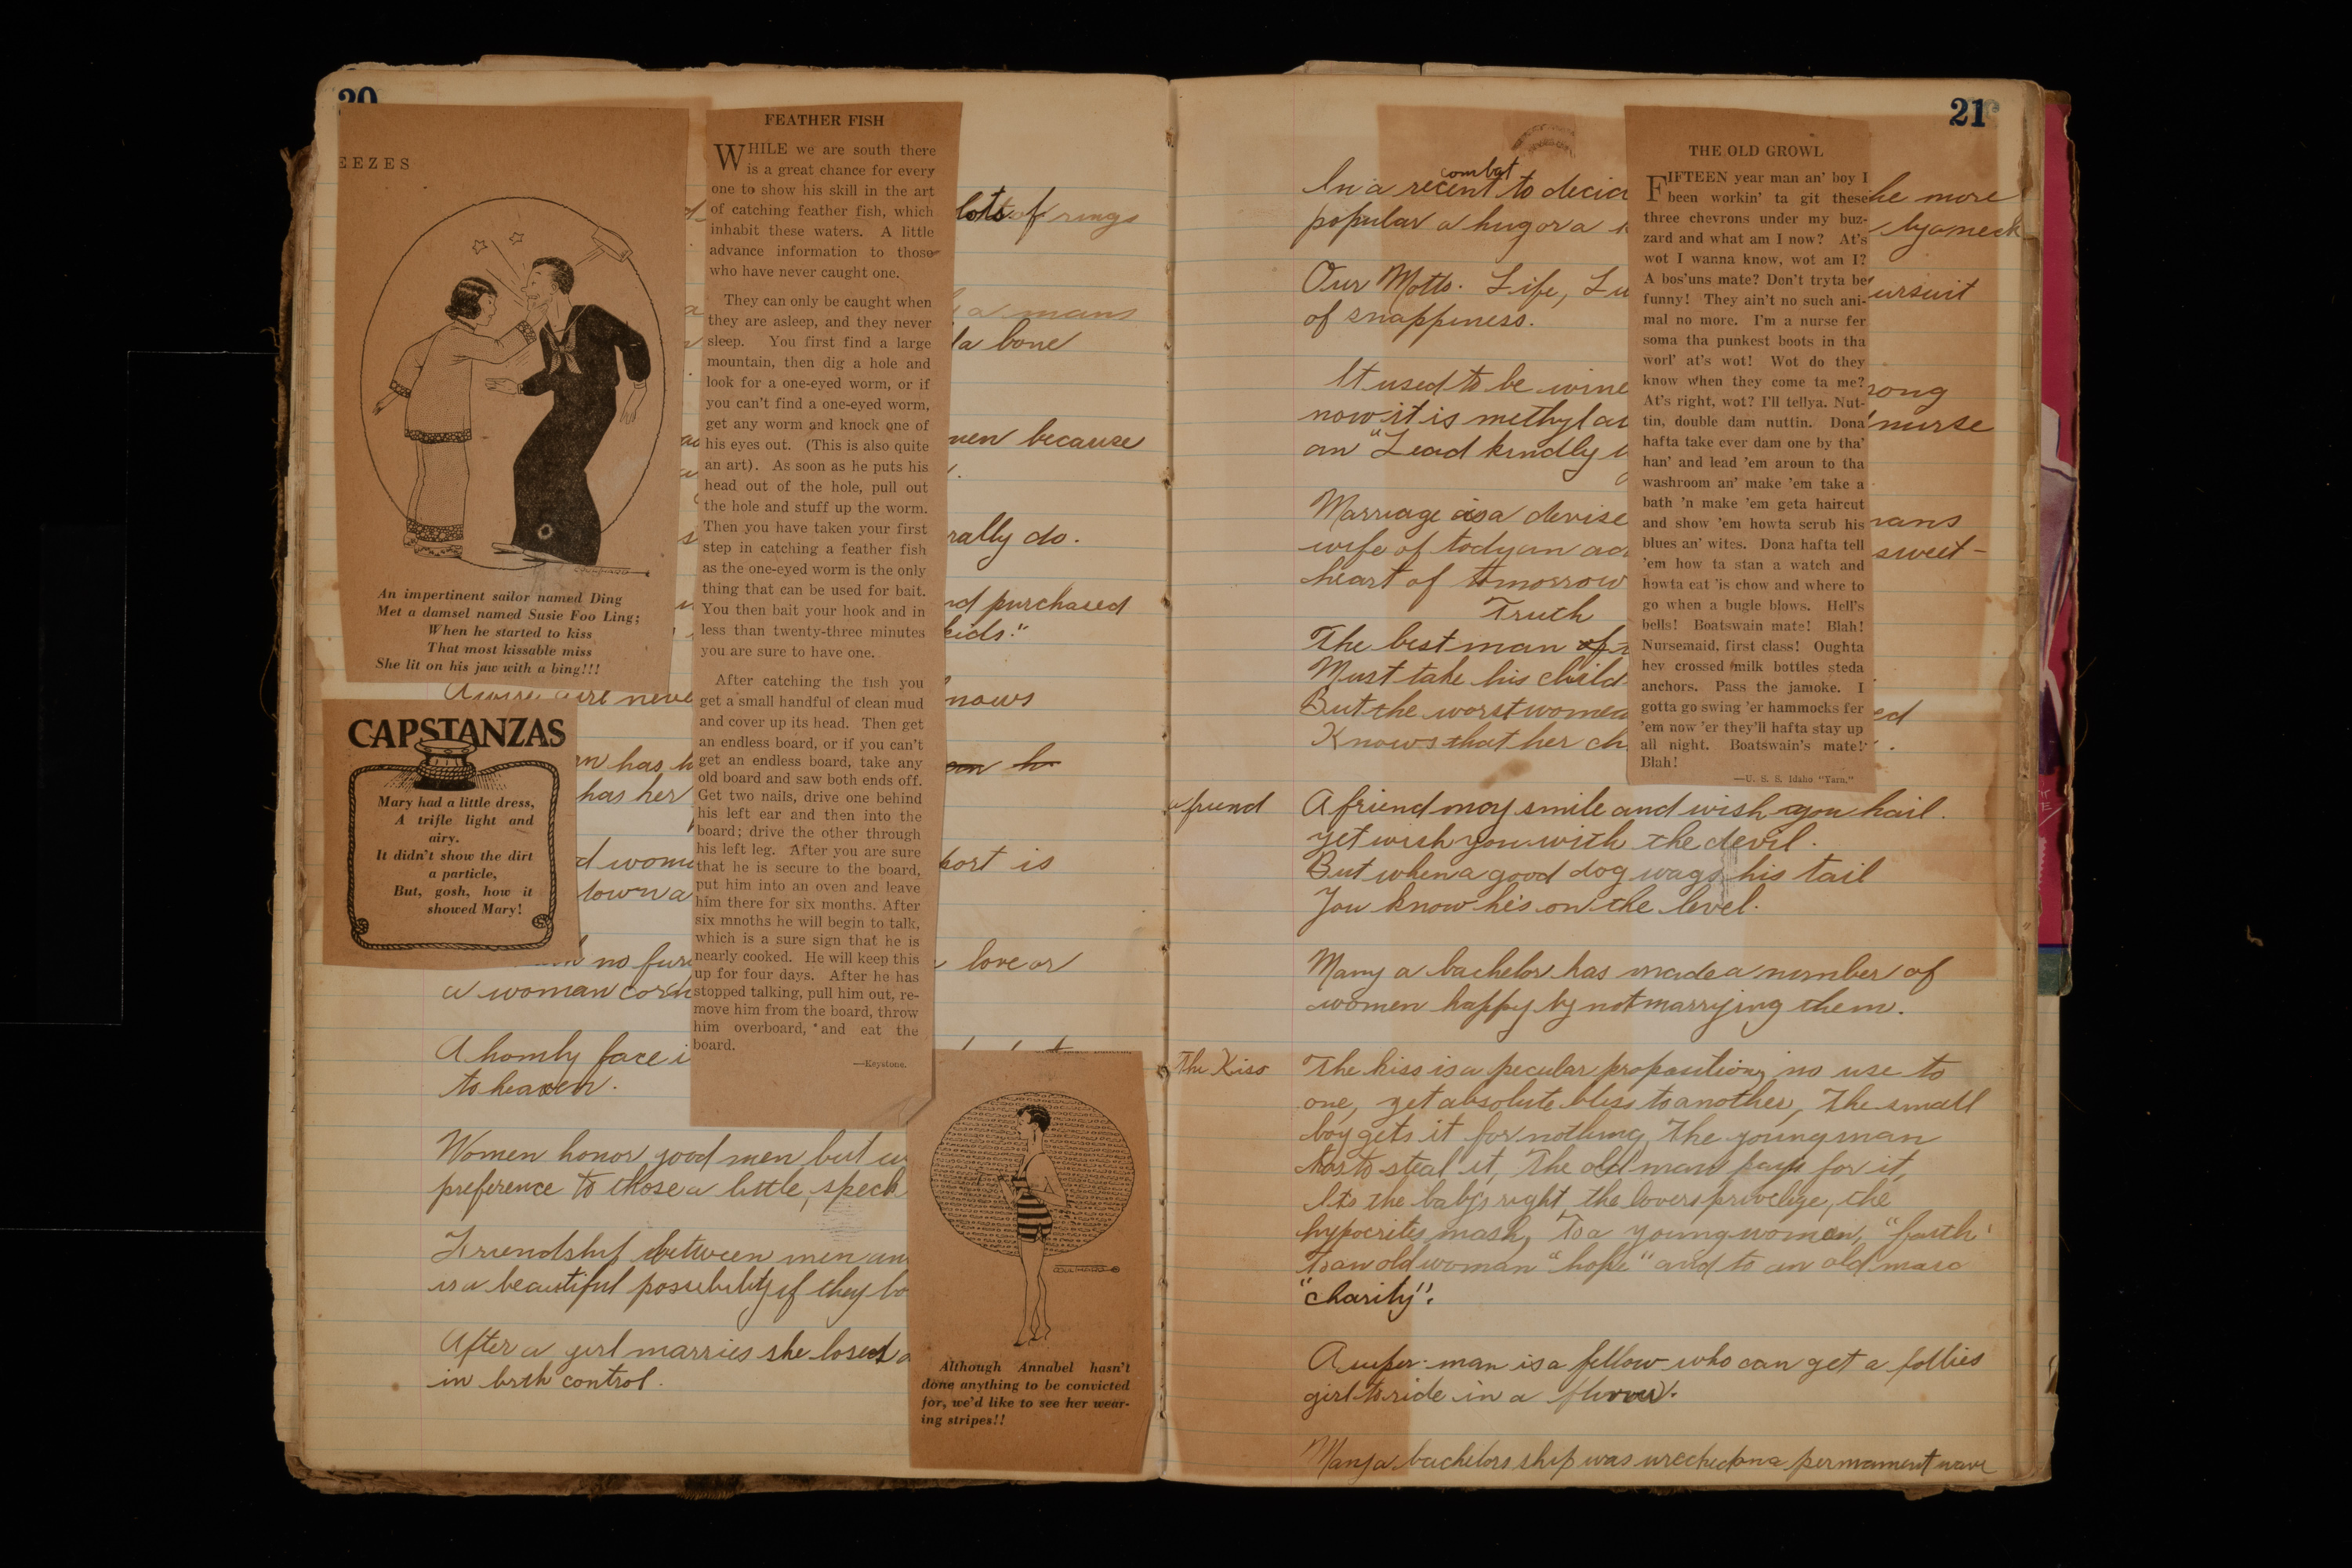 20
EEZES
An impertinent sailor named Ding
Met a damsel named Susie Foo Ling;
When he started to kiss
That most kissable miss
She lit on his jaw with a bing!!!
CAPSTANZAS
Mary had a little dress,
A trifle light and
airy.
It didn't show the dirt
a particle,
But, gosh, how it
showed Mary!
FEATHER FISH
WHILE we are south there
is a great chance for every
one to show his skill in the art
of catching feather fish, which
inhabit these waters. A little
advance information to those
who have never caught one.
They can only be caught when
they are asleep, and they never
sleep. You first find a large
mountain, then dig a hole and
look for a one-eyed worm, or if
you can't find a one-eyed worm,
get any worm and knock one of
his eyes out. (This is also quite
an art). As soon as he puts his
head out of the hole, pull out
the hole and stuff up the worm.
Then you have taken your first
step in catching a feather fish
as the one-eyed worm is the only
thing that can be used for bait.
You then bait your hook and in
less than twenty-three minutes
you are sure to have one.
After catching the fish you
get a small handful of clean mud
and cover up its head. Then get
an endless board, or if you can't
get an endless board, take any
old board and saw both ends off.
Get two nails, drive one behind
his left ear and then into the
board; drive the other through
his left leg. After you are sure
that he is secure to the board,
put him into an oven and leave
him there for six months. After
six mnoths he will begin to talk,
which is a sure sign that he is
nearly cooked. He will keep this
up for four days. After he has
stopped talking, pull him out, re-
move him from the board, throw
him overboard, and eat the
board.
—Keystone.
lots of rings
a mans
a bone
men because
rally do.
nd purchased
kids."
nows
has her
town a
no
love or
a woman
A homly face
to heaven.
Women honor good men but
preference to those a little
Friendship between men
is a beautiful possibility if they
After a girl marries she loses
in brth control.
Although Annabel hasn't
done anything to be convicted
for, we'd like to see her wear-
ing stripes!!
21
combat
In a recent to decid he more
popular a hug or a by a neck
Our Motto. Life, Lu ursuit
of snappiness.
It used to be wine rong
now it is methyl nurse
an "Lead kindly
Marriage is a devise mans
wife of tody an sweet-
heart of tomorrow
Truth
The best man of
Must take his child
But the worst women ed
Knows that her ch
THE OLD GROWL
FIFTEEN year man an' boy I
been workin' ta git these
three chevrons under my buz-
zard and what am I now? At's
wot I wanna know, wot am I?
A bos'uns mate? Don't tryta be
funny! They ain't no such ani-
mal no more. I'm a nurse fer
soma tha punkest boots in tha
worl' at's wot! Wot do they
know when they come ta me?
At's right, wot? I'll tellya. Nut-
tin, double dam nuttin. Dona
hafta take ever dam one by tha'
han' and lead 'em aroun to tha
washroom an' make 'em take a
bath 'n make 'em geta haircut
and show 'em howta scrub his
blues an' wites. Dona hafta tell
'em how ta stan a watch and
howta eat 'is chow and where to
go when a bugle blows. Hell's
bells! Boatswain mate! Blah!
Nursemaid, first class! Oughta
hev crossed milk bottles steda
anchors. Pass the jamoke. I
gotta go swing 'er hammocks fer
'em now 'er they'll hafta stay up
all night. Boatswain's mate!
Blah!
—U. S. S. Idaho "Yarn."
friend A friend may smile and wish you hail.
yet wish you with the devil.
But when a good dog wags his tail
You know he's on the level.
Many a bachelor has made a number of
women happy by not marrying them.
The Kiss The kiss is a pecular proposition, no use to
one, yet absolute bliss to another, The small
boy gets it for nothing, The young man
has to steal it, The old man pays for it,
Its the babys right, the lovers privelege, the
hypocrites mask, To a young women, "faith"
To an old woman "hope" and to an old maid
"charity".
man is a fellow who can get a follies
girl to ride in a flivver.
Many a bachelors ship was wrecked on a permament wave